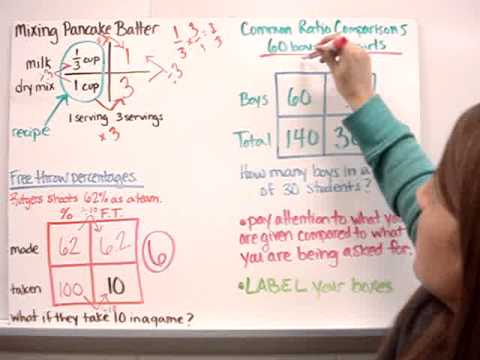 Mixing Pancake Batter
milk 1/3 cup 1
dry mix 1 cup 3
÷3
1/3 × 3/1 = 3/3
÷3
recipe
1 serving 3 servings
× 3
Free throw percentages
Rutgers shoots 62% as a team.
% ÷10 F.T.
made 62 6.2
6
taken 100 10
÷10
what if they take 10 in a game?
Common Ratio Comparisons
60 boys
Boys 60
Total 140
How many boys in a
of 30 students?
• pay attention to what you
are given compared to what
you are being asked for.
• LABEL your boxes